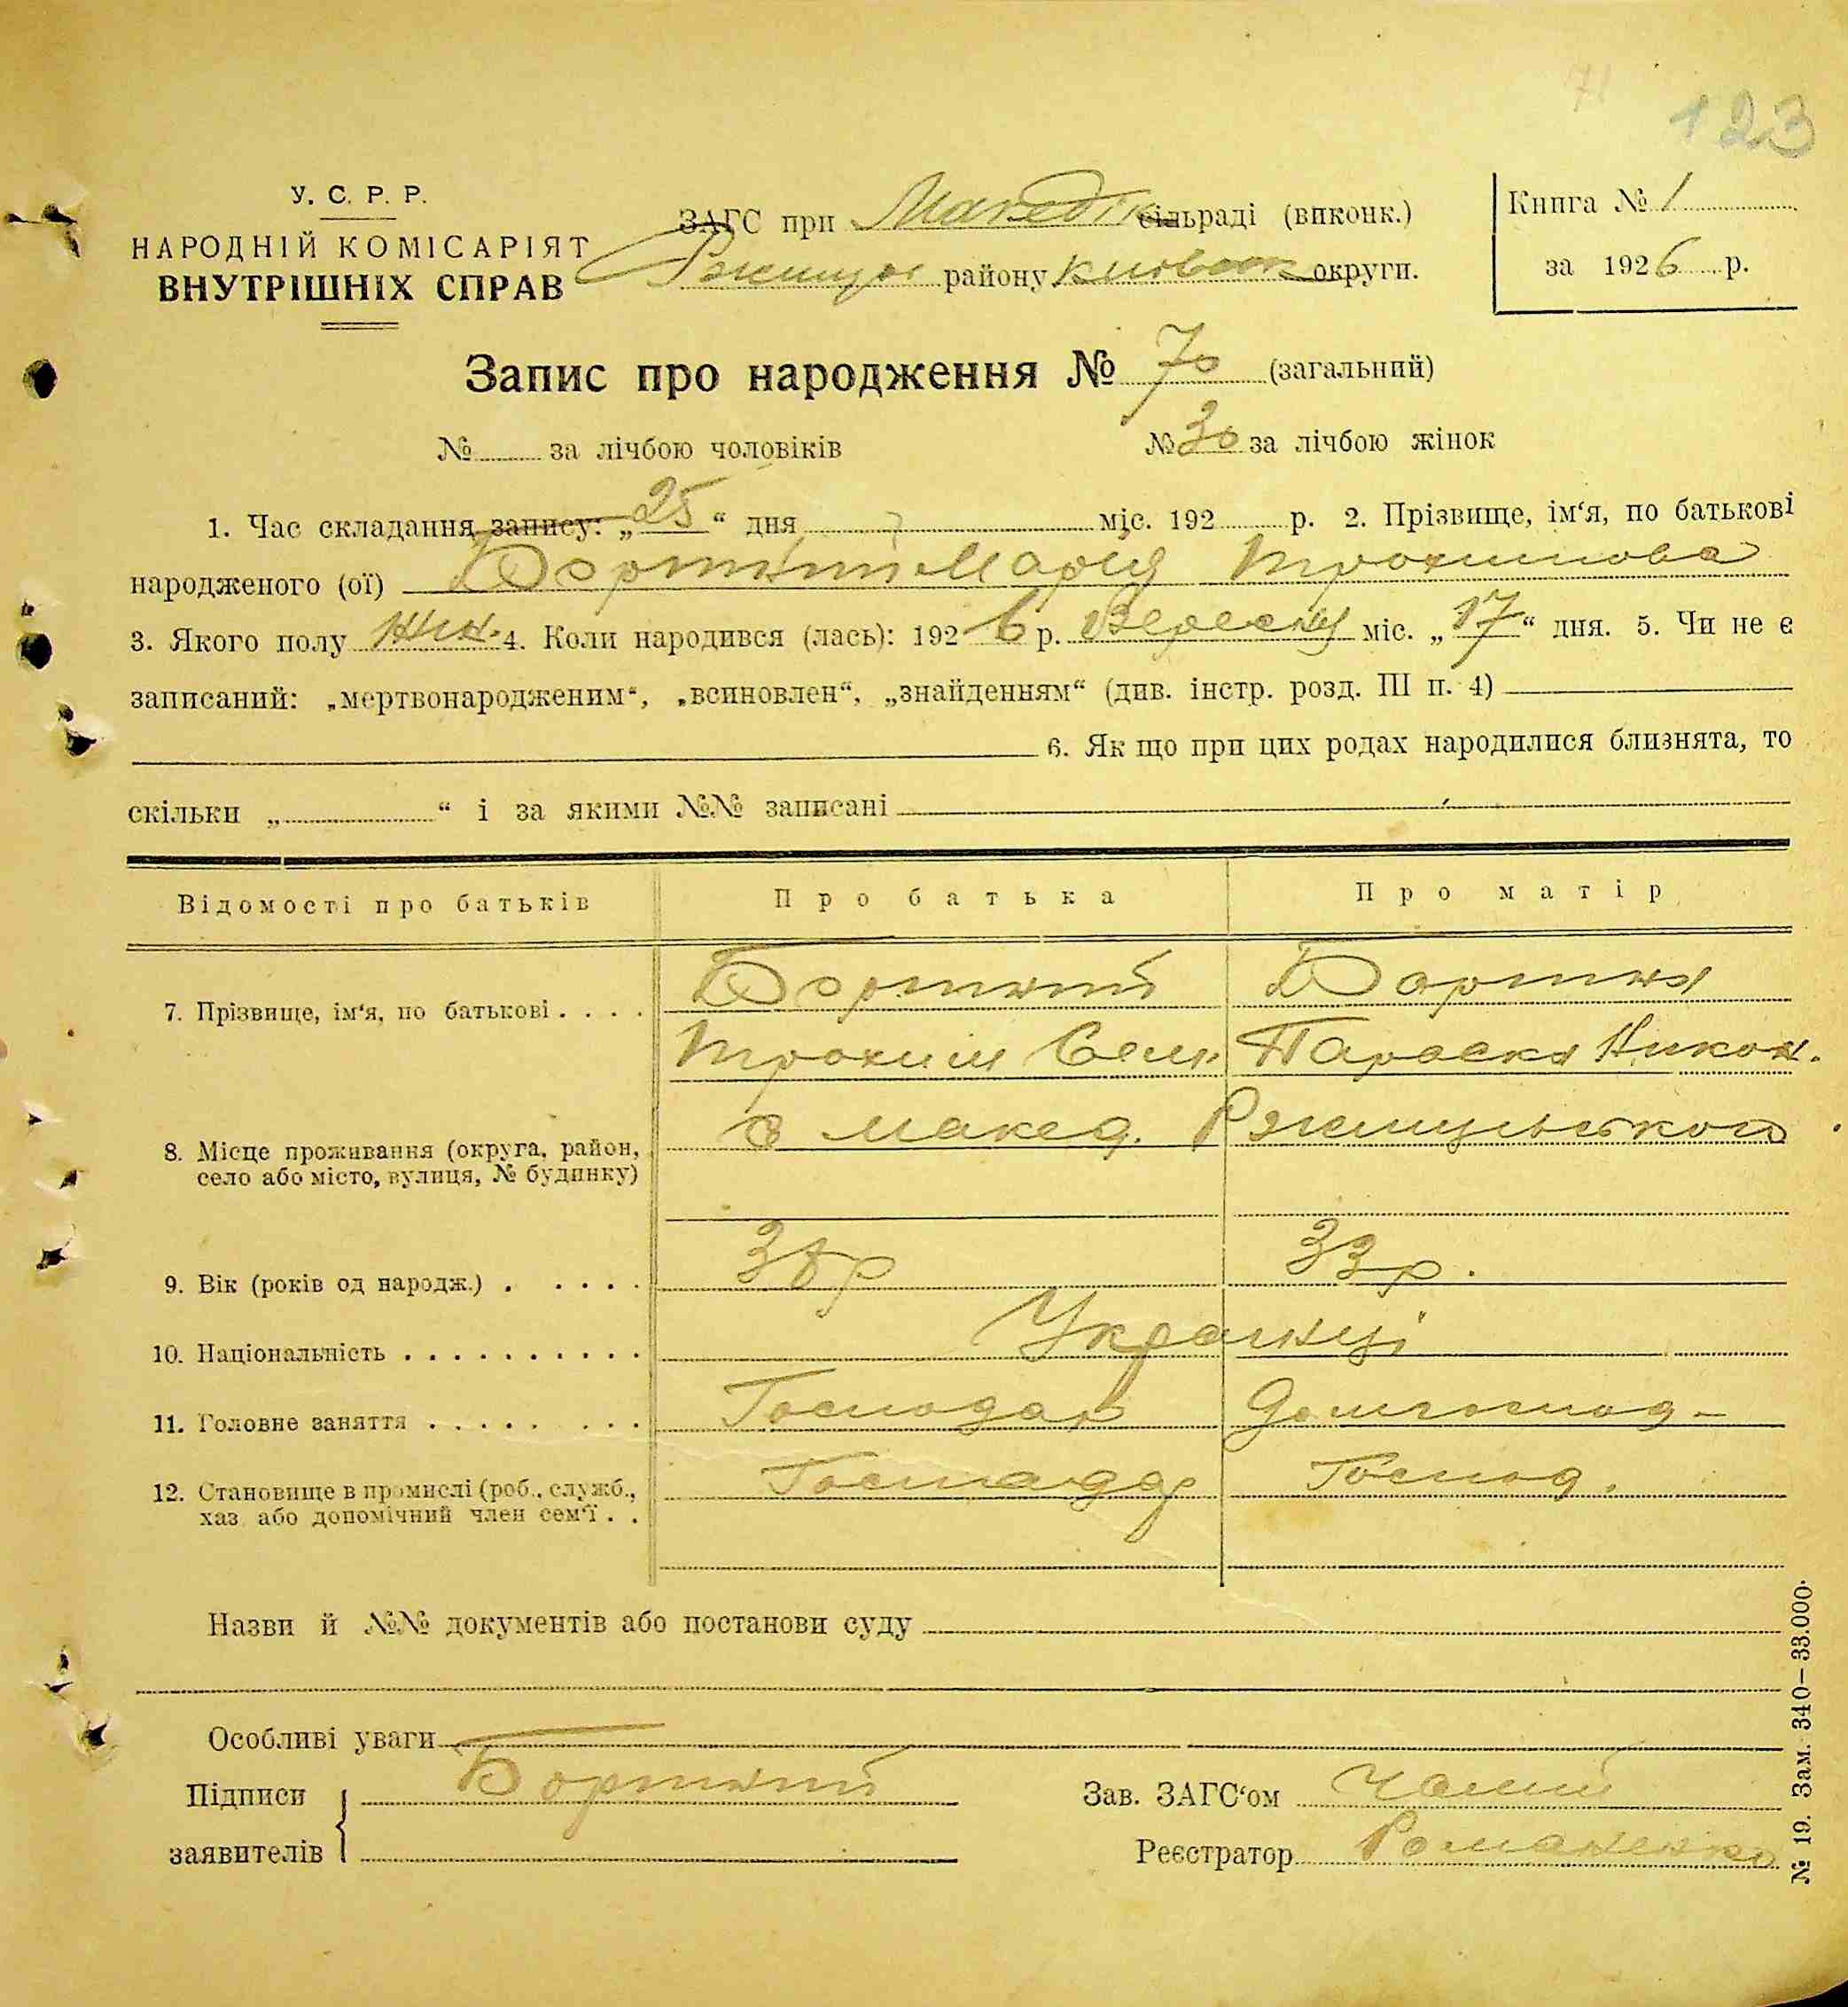 71
123
У. С. Р. Р.
НАРОДНІЙ КОМІСАРІЯТ
ВНУТРІШНІХ СПРАВ
ЗАГС при Македон сільраді (виконк.)
Ржищів району Київськ округи.
Книга № 1
за 1926 р.
Запис про народження № 70 (загальний)
№ за лічбою чоловіків
№ 30 за лічбою жінок
1. Час складання запису: „25“ дня міс. 192 р. 2. Прізвище, ім‘я, по батькові
народженого (ої) Бортній Марія Трохимова
3. Якого полу жін. 4. Коли народився (лась): 1926 р. Вересня міс. „17“ дня. 5. Чи не є
записаний: „мертвонародженим“, „всиновлен“, „знайденням“ (див. інстр. розд. III п. 4)
6. Як що при цих родах народилися близнята, то
скільки „ “ і за якими №№ записані
Відомості про батьків Про батька Про матір
7. Прізвище, ім‘я, по батькові . . . . Бортний Бортня
Трохим Сем. Параска Никон.
8. Місце проживання (округа, район, село або місто, вулиця, № будинку) с Макед. Ржищівського
9. Вік (років од народж.) . . . . . 38р 33р.
10. Національність . . . . . . . . . . Українці
11. Головне заняття . . . . . . . . Господар Домгоспод-
12. Становище в промислі (роб., служб., хаз або допомічний член сем‘ї . . Господар Господ.
Назви й №№ документів або постанови суду
Особливі уваги
Підписи заявителів Бортний
Зав. ЗАГС‘ом
Реєстратор Романенко
№ 19. Зам. 340—33.000.